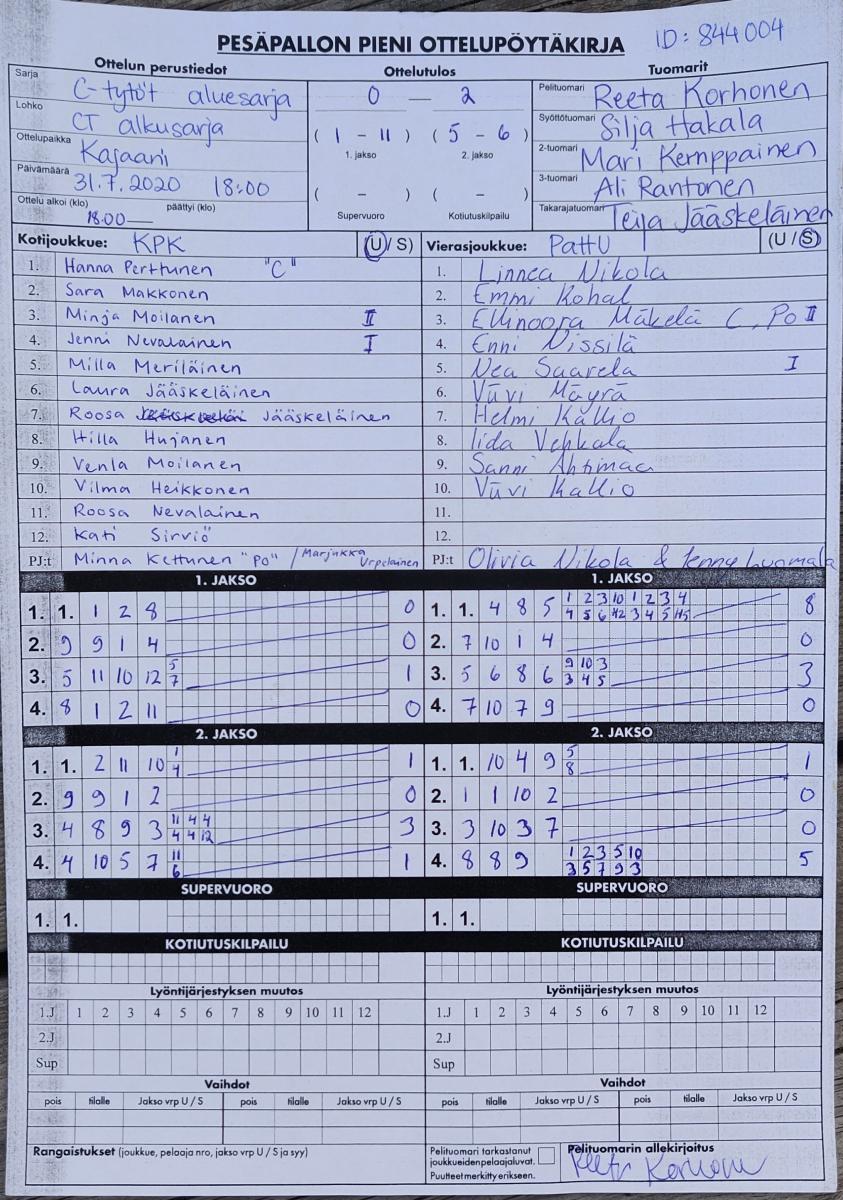 PESÄPALLON PIENI OTTELUPÖYTÄKIRJA ID: 844004
Ottelun perustiedot Ottelutulos Tuomarit
Sarja C-tytöt aluesarja 0 — 2 Pelituomari Reeta Korhonen
Lohko CT alkusarja ( 1 - 11 ) ( 5 - 6 ) Syöttötuomari Silja Hakala
Ottelupaikka Kajaani 1. jakso 2. jakso 2-tuomari Mari Kemppainen
Päivämäärä 31.7.2020 18:00 ( - ) ( - ) 3-tuomari Ali Rantonen
Ottelu alkoi (klo) 18.00— päättyi (klo) Supervuoro Kotiutuskilpailu Takarajatuomari Teija Jääskeläinen
Kotijoukkue: KPK (U/S) Vierasjoukkue: PattU (U/S)
1. Hanna Perttunen "C" 1. Linnea Nikola
2. Sara Makkonen 2. Emmi Kohal
3. Minja Moilanen II 3. Ellinoora Mäkelä C, Po II
4. Jenni Nevalainen I 4. Enni Nissilä
5. Milla Meriläinen 5. Nea Saarela I
6. Laura Jääskeläinen 6. Viivi Mäyrä
7. Roosa Jääskeläinen 7. Helmi Kallio
8. Hilla Hujanen 8. Iida Vehkala
9. Venla Moilanen 9. Sanni Ahtimaa
10. Vilma Heikkonen 10. Viivi Kallio
11. Roosa Nevalainen 11.
12. Kati Sirviö 12.
PJ:t Minna Kettunen "Po" / Marjukka Urpelainen PJ:t Olivia Nikola & Jenny Luomala
1. JAKSO 1. JAKSO
1. 1. 1 2 8 0 1. 1. 4 8 5 1 2 3 10 1 2 3 4 8
4 5 6 12 3 4 5
2. 9 9 1 4 0 2. 7 10 1 4 0
3. 5 11 10 12 5 1 3. 5 6 8 6 9 10 3 3
7 3 4 5
4. 8 1 2 11 0 4. 7 10 7 9 0
2. JAKSO 2. JAKSO
1. 1. 2 11 10 1 1 1. 1. 10 4 9 5 1
4 8
2. 9 9 1 2 0 2. 1 1 10 2 0
3. 4 8 9 3 11 4 4 3 3. 3 10 3 7 0
4 4 12
4. 4 10 5 7 11 1 4. 8 8 9 1 2 3 5 10 5
6 3 5 7 9 3
SUPERVUORO SUPERVUORO
1. 1. 1. 1.
KOTIUTUSKILPAILU KOTIUTUSKILPAILU
Lyöntijärjestyksen muutos Lyöntijärjestyksen muutos
1.J 1 2 3 4 5 6 7 8 9 10 11 12 1.J 1 2 3 4 5 6 7 8 9 10 11 12
2.J 2.J
Sup Sup
Vaihdot Vaihdot
pois tilalle Jakso vrp U / S pois tilalle Jakso vrp U / S pois tilalle Jakso vrp U / S pois tilalle Jakso vrp U / S
Rangaistukset (joukkue, pelaaja nro, jakso vrp U / S ja syy) Pelituomari tarkastanut joukkueiden pelaajaluvat. Puutteet merkitty erikseen. Pelituomarin allekirjoitus
Reeta Korhonen